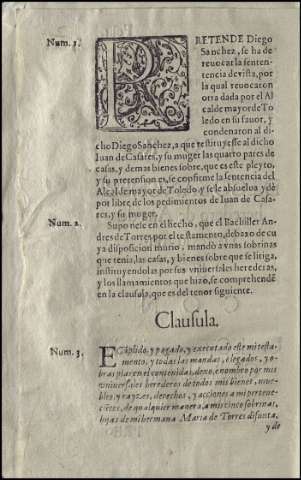 Num. 1.
RETENDE Diego
Sanchez, se ha de
reuocar la senten-
tencia de vista, por
la qual reuocaron
otra dada por el Al
calde mayor de To
ledo en su fauor, y
condenaron al di-
cho Diego Sanchez, a que restituyesse al dicho
Iuan de Casares, y su muger las quatro partes de
casas, y demas bienes sobre, que es este pleyto,
y su pretension es, se confirme la sentencia del
Alcalde mayor de Toledo, y se le absuelua y dè
por libre de los pedimientos de Iuan de Casa-
res, y su muger.
Num. 2.
Supone se en el hecho, que el Bachiller An
dres de Torres por el testamento, debaxo de cu
ya disposicion murio, mandò a vnas sobrinas
que tenia, las casas, y bienes sobre que se litiga,
instituyendolas por sus vniuersales herederas,
y los llamamientos que hizo, se comprehendē
en la clausula, que es del tenor siguiente.
Clausula.
Num. 3.
E Cūplido, y pagado, y executado este mi testa-
mento, y todas las mandas, e legados, y o-
bras pias en el contenidas, dexo, e nombro por mis
vniuersales herederos de todos mis bienes, mue-
bles, y rayzes, derechos, y acciones a mi pertene-
cietes, de qualquier manera, a mis cinco sobrinas,
hijas de mi hermana Maria de Torres difunta,
y de